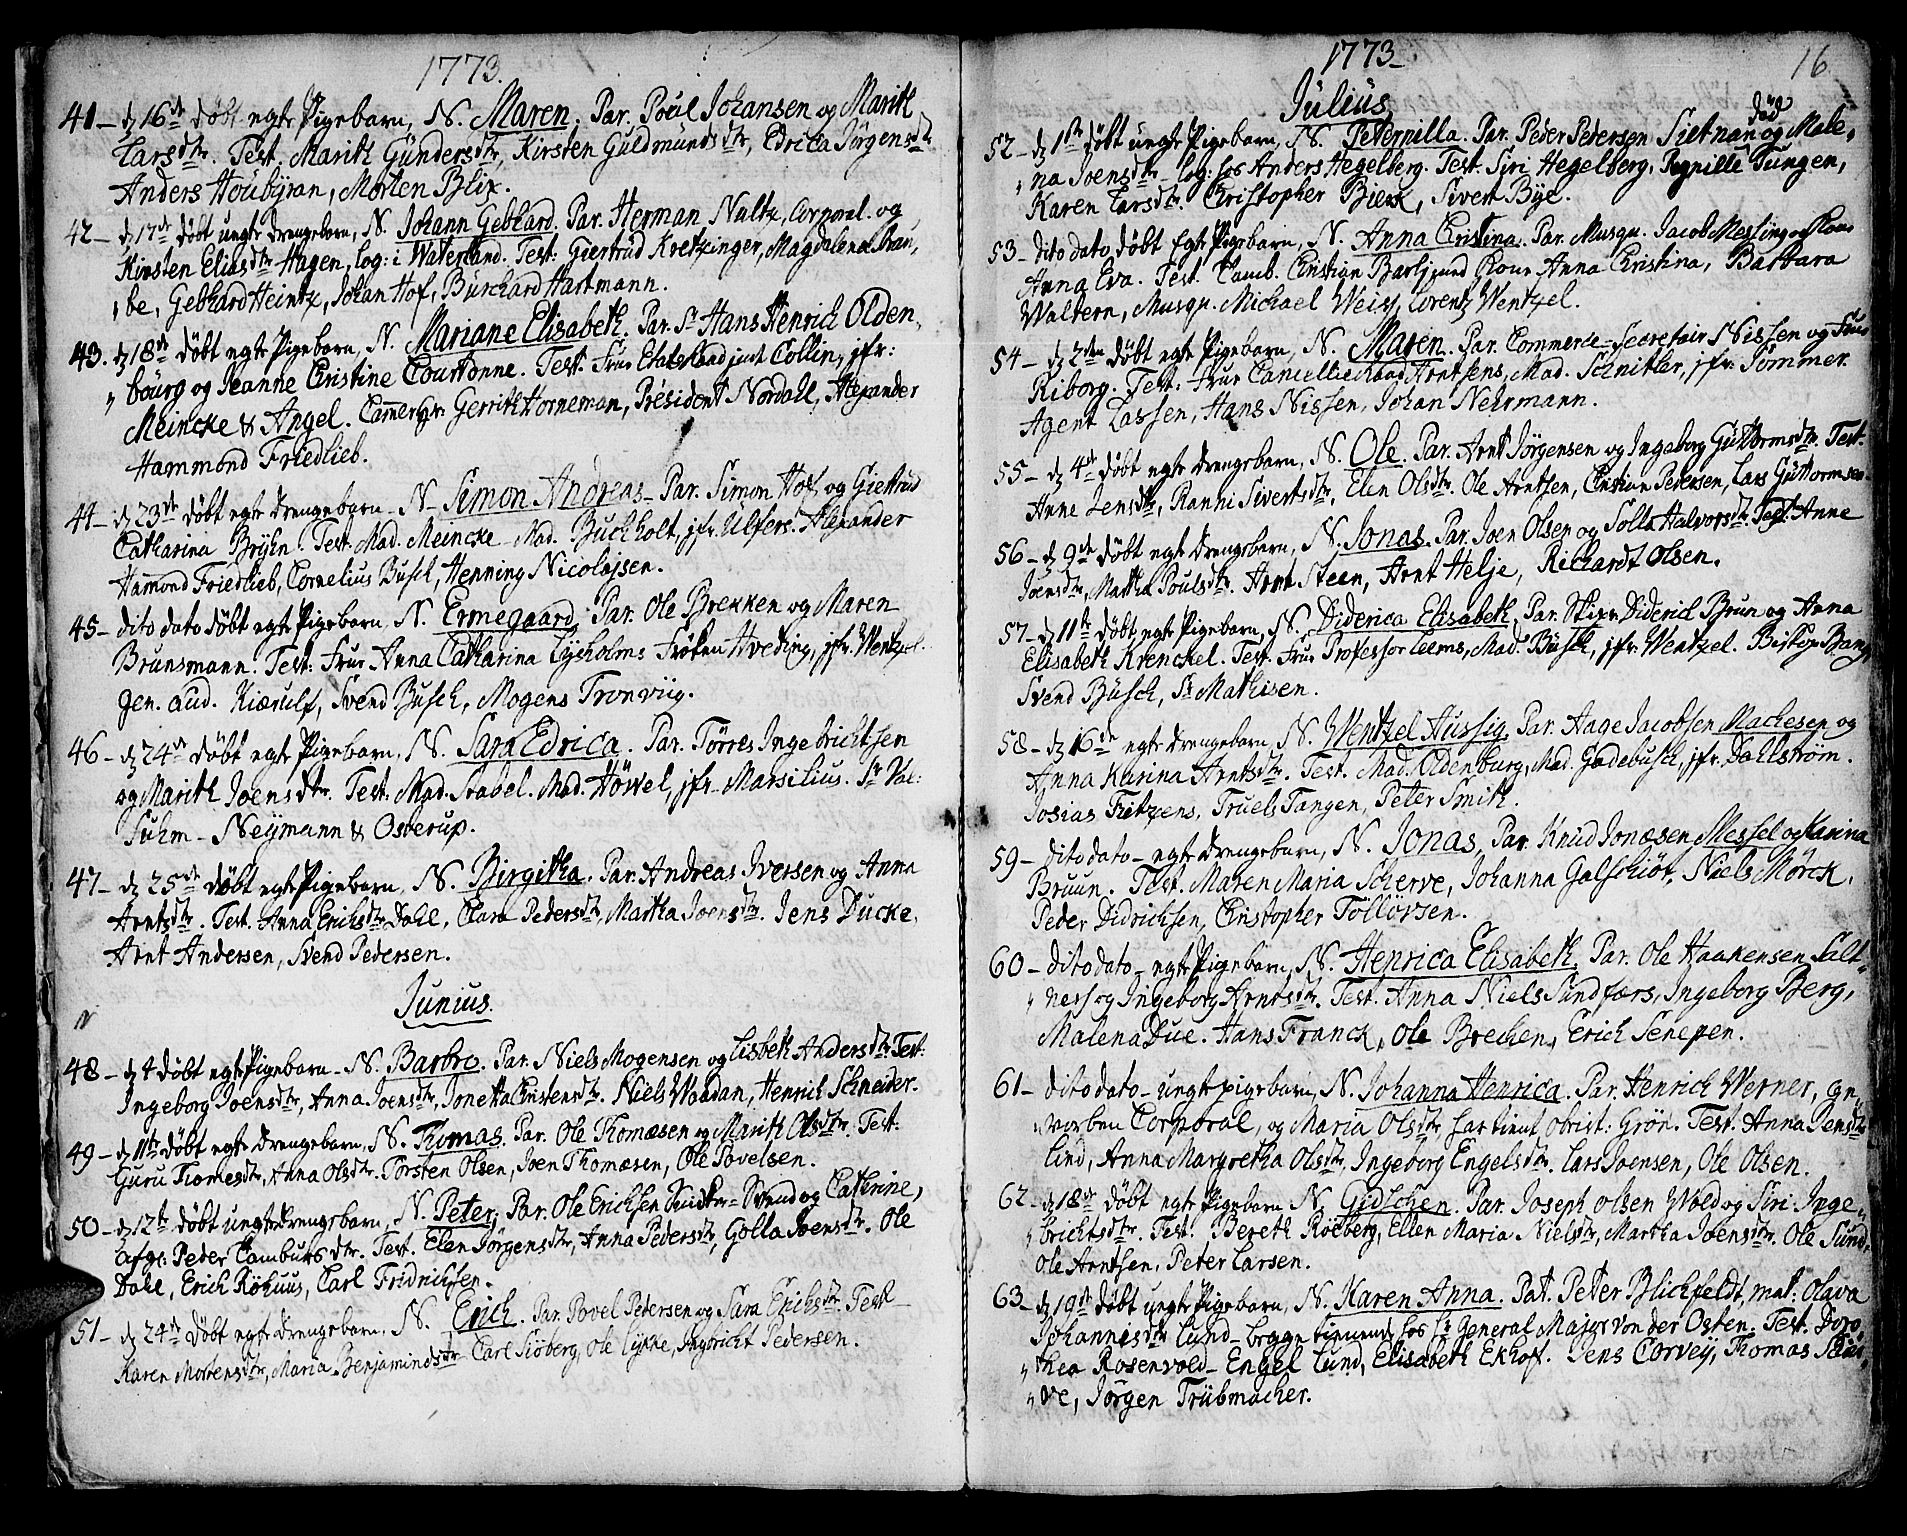 1773.
41 – d 16de døbt egte Pigebarn, N. Maren. Par. Poul Johansen og Marith
Larsdtr. Test. Marith Gündersdtr, Kirsten Guldmundsdtr, Edrica Jørgensdtr
Anders Houbyran, Morten Blix.
42 – d 17de døbt ungte drengebarn, N. Johann Gebhard. Par. Herman Nultz, Corporal. og
Kirsten Eliasdtr Hagen, log: i Waterland. Test: Giertrud Kretzinger, Magdalena Trau,
„be, Gebhard Heintz, Johan Hof, Burchard Hartmann.
43. d 18de døbt egte Pigebarn, N. Mariane Elisabeth. Par. Sr Hans Henrich Olden,
„bourg og Jeanne Christine Courtonne. Test. Frue Etatsraad Collin, jfr:
Meincke & Angel. Cammerh: Gerrith Horneman, Président Nordahl, Alexander
Hammond Friedlieb.
44 – d 23de døbt egte drengebarn – N – Simon Andreas – Par. Simon Hof, og Giertrud
Catharina Bryhn. Test. Mad. Meincke Mad. Buchholt, jfr. Ulfers. Alexander
Hamond Friedlieb, Cornelius Busch, Henning Nicolajsen.
45 – dito dato døbt egte Pigebarn, N. Ermegaard. Par. Ole Brekken og Maren
Brunsmann. Test: Frue Anna Catharina Lysholms Frøken Hveding, jfr. Wentzel.
gen. aud. Kierulf, Svend Busch, Mogens Tronviig.
46 – d 24de døbt egte Pigebarn, N. Sara Edrica. Par. Tørres Ingebrichtsen
og Marith Joensdtr. Test: Mad. Stabel. Mad. Høwel, jfr. Marsilius. Sr Val:
Suhm – Neÿmann & Osterup.
47 – d 25de døbt egte Pigebarn, N. Birgitha. Par. Andreas Iversen og Anna
Arntsdtr. Test. Anna Erichsdtr Dahl, Clara Pedersdtr, Martha Joensdtr. Jens Ducke,
Arnt Andersen, Svend Pedersen.
Junius.
48 – d 4 døbt egte Pigebarn – N. Barbro. Par. Niels Mogensen og Lisbeth Andersdtr Test:
Ingeborg Joensdtr, Anna Joensdtr, Jonetta Christensdtr. Niels Waadan, Henrich Schneider.
49 – d 11te døbt egte drengebarn, N. Thomas. Par. Ole Thomæsen og Marith Olsdtr. Test:
Guru Tiomesdtr, Anna Olsdtr. Torsten Olsen, Joen Thomæsen, Ole Povelsen.
50 – d 12te døbt ungte drengebarn, N. Peter, Par. Ole Erichsen Svend og Cathrine,
afg: Peder Camburs dtr. Test. Elen Jørgensdtr, Anna Pedersdtr, Golla Joensdtr. Ole
Dahl, Erich Røhuus, Carl Fridrichsen.
51 – d 24de døbt egte drengebarn, N. Erich. Par. Povel Pedersen og Sara Erichsdtr. Test
Karen Mortensdtr, Maria Benjaminsdtr Carl Siøberg, Ole Lykke, Ingbricht Pedersen.
1773 –
16
Julius
52 – d 1ste døbt ungte Pigebarn, N. Peternilla. Par. Peder Petersen Sletnan død og Male,
„na Joensdtr – log: hos Anders Hegelberg. Test. Siri Hegelberg, Pernille Tungen,
Karen Larsdtr. Christopher Bierk, Sivert Bye.
53 – dito dato, døbt Egte Pigebarn, N. Anna Cristina. Par. Musqu. Jacob Messing og Kone
Anna Eva. Test. Tamb. Christian Kone Anna Christina, Barbara
Waltern, Musqu. Michael Weis, Lorentz Wentzel.
54 – d 2den døbt egte Pigebarn, N. Maren. Par. Commerce-Secretair Nissen og Frue
Riborg. Test: Frue Cancellieraad Arntsens, Mad. Schnitler, jfr. Sommer.
Agent Lassen, Hans Nissen, Johan Nehrmann.
55 – d 4de døbt egte drengebarn, N. Ole. Par. Arnt Jørgensen og Ingeborg Guttormsdtr. Test:
Anne Jensdtr, Ranni Sivertsdtr, Elen Olsdtr. Ole Arntsen, Christian Pedersen, Lars Guttormsen.
56 – d 9de døbt egte drengsbarn, N. Jonas. Par. Joen Olsen og Solla Halvorsdtr. Test. Anne
Joensdtr, Martha Poulsdtr. Arnt Steen, Arnt Helje, Richardt Olsen.
57 – d 11te døbt egte Pigebarn, N. Diderica Elisabeth, Par. Skipr. Diderich Brun og Anna
Elisabeth Krenckel. Test. Frue Professor Leems, Mad. Busch, jfr. Wentzel. Biskop Bang,
Svend Busch, Sr Mathisen.
58 – d 16de egte drengebarn, N. Wentzel Hussig. Par. Aage Jacobsen Machesen og
Anna Karina Arntsdtr. Test. Mad. Oldenburg, Mad. Gadebusch, jfr. Dahlstrøm.
Josias Fritzens, Truels Tangen, Peter Smith.
59 – dito dato – egte drengebarn, N. Jonas, Par. Knud Jonæsen Messel og Karina
Bruun. Test. Maren Maria Scherve, Johanna Galschiøt, Niels Mørck,
Peder Didrichsen, Christopher Tølløvsen.
60 – dito dato – egte Pigebarn, N. Henrica Elisabeth. Par. Ole Haakensen Salt-
„nes og Ingeborg Arntsdtr. Test. Anna Niels Sundfærs, Ingeborg Berg,
Malena Due. Hans Franck, Ole Brechen, Erich Senepen.
61 – dito dato – ungte pigebarn, N. Johanna Henrica. Par. Henrich Werner, gn„
„vorben Corporal, og Maria Olsdtr, har tient obrist: Grøn. Test. Anna Jensdtr
Lind, Anna Margretha Olsdtr, Ingeborg Engelsdtr. Lars Joensen, Ole Olsen.
62 – d 18de døbt egte Pigebarn N. Gidschen. Par. Joseph Olsen Wold og Siri Inge„
„brichtsdtr. Test. Bereth Røeberg, Ellen Maria Nielsdtr, Martha Joensdtr. Ole Sund,
Ole Arntsen, Peter Larsen.
63 – d 19de døbt ungte Pigebarn, N. Karen Anna. Pat. Peter Blichfeldt, mat: Olava
Johannisdtr Lund – begge tienende hos Hr General Major von der Osten. Test. Doro,
„thea Rosenvold – Engel Lund, Elisabeth Ekhof. Jens Corvey, Thomas
„ve, Jørgen Trübmacher.